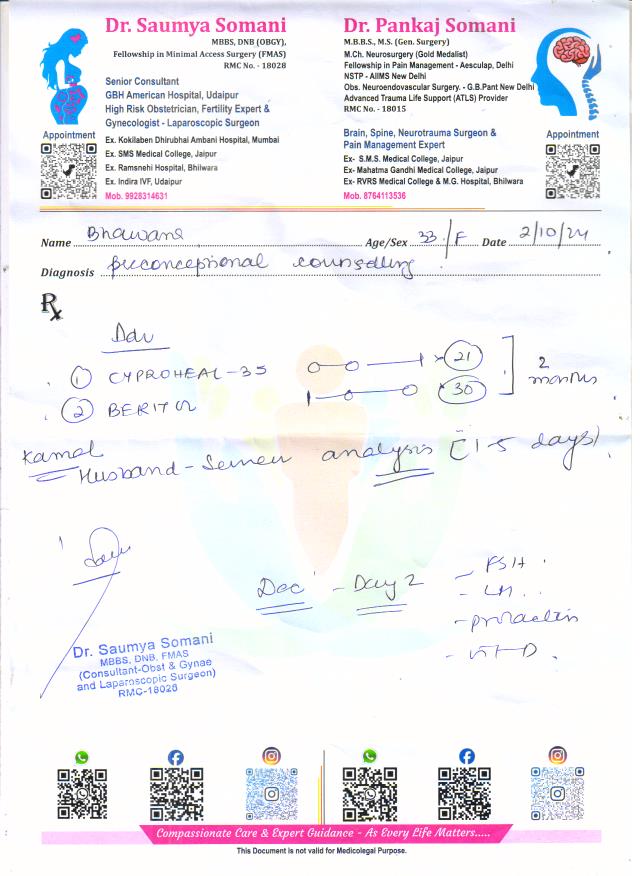 Dr. Saumya Somani
MBBS, DNB (OBGY),
Fellowship in Minimal Access Surgery (FMAS)
RMC No. - 18028
Senior Consultant
GBH American Hospital, Udaipur
High Risk Obstetrician, Fertility Expert &
Gynecologist - Laparoscopic Surgeon
Appointment
Ex. Kokilaben Dhirubhai Ambani Hospital, Mumbai
Ex. SMS Medical College, Jaipur
Ex. Ramsnehi Hospital, Bhilwara
Ex. Indira IVF, Udaipur
Mob. 9928314631
Dr. Pankaj Somani
M.B.B.S., M.S. (Gen. Surgery)
M.Ch. Neurosurgery (Gold Medalist)
Fellowship in Pain Management - Aesculap, Delhi
NSTP - AIIMS New Delhi
Obs. Neuroendovascular Surgery. - G.B.Pant New Delhi
Advanced Trauma Life Support (ATLS) Provider
RMC No. - 18015
Brain, Spine, Neurotrauma Surgeon &
Pain Management Expert
Appointment
Ex- S.M.S. Medical College, Jaipur
Ex- Mahatma Gandhi Medical College, Jaipur
Ex- RVRS Medical College & M.G. Hospital, Bhilwara
Mob. 8764113536
Name Bhawana Age/Sex 33/F Date 2/10/24
Diagnosis preconceptional counselling
Rx
Adv
① CYPROHEAL-35 0-0-1 x 21
② 1-0-0 x 30
2 months
Kamal
Husband - Semen analysis [1-5 days]
Dec - Day 2
- FSH
- LH
- prolactin
- VIT-D
Dr. Saumya Somani
MBBS, DNB, FMAS
(Consultant-Obst & Gynae
and Laparoscopic Surgeon)
RMC-18028
Compassionate Care & Expert Guidance - As Every Life Matters.....
This Document is not valid for Medicolegal Purpose.